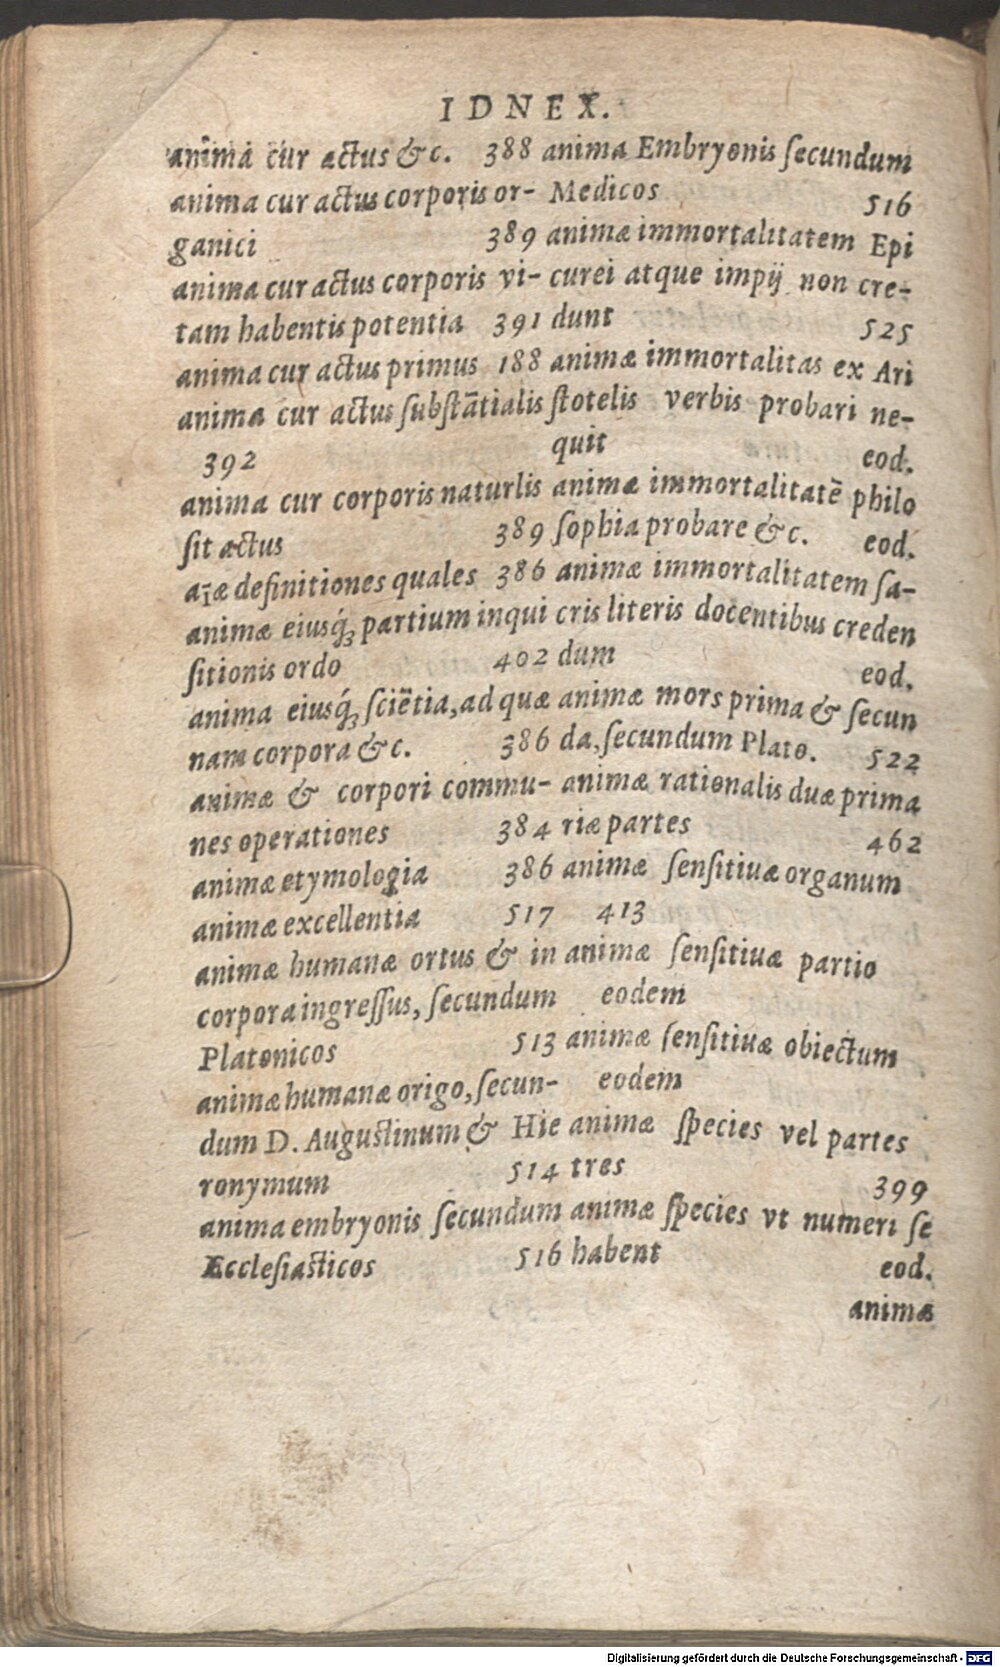 IDNEX.
anima cur actus &c. 388
anima cur actus corporis or-
ganici 389
anima cur actus corporis vi-
tam habentis potentia 391
anima cur actus primus 188
anima cur actus ſubſtātialis
392
anima cur corporis naturlis
ſit actus 389
aīæ definitiones quales 386
animæ eiusq́ꝫ partium inqui
ſitionis ordo 402
anima eiusq́ꝫ ſciētia, ad quæ
nam corpora &c. 386
animæ & corpori commu-
nes operationes 384
animæ etymologia 386
animæ excellentia 517
animæ humanæ ortus & in
corpora ingreſſus, ſecundum
Platonicos 513
animæ humanæ origo, ſecun-
dum D. Auguſtinum & Hie
ronymum 514
anima embryonis ſecundum
Eccleſiaſticos 516
anima Embryonis ſecundum
Medicos 516
animæ immortalitatem Epi
curei atque impij non cre-
dunt 525
animæ immortalitas ex Ari
ſtotelis verbis probari ne-
quit eod.
animæ immortalitatē philo
ſophia probare &c. eod.
animæ immortalitatem ſa-
cris literis docentibus creden
dum eod.
animæ mors prima & ſecun
da, ſecundum Plato. 522
animæ rationalis duæ prima
riæ partes 462
animæ ſenſitiuæ organum
413
animæ ſenſitiuæ partio
eodem
animæ ſenſitiuæ obiectum
eodem
animæ ſpecies vel partes
tres 399
animæ ſpecies vt numeri ſe
habent eod.
animæ
Digitalisierung gefördert durch die Deutsche Forschungsgemeinschaft - DFG